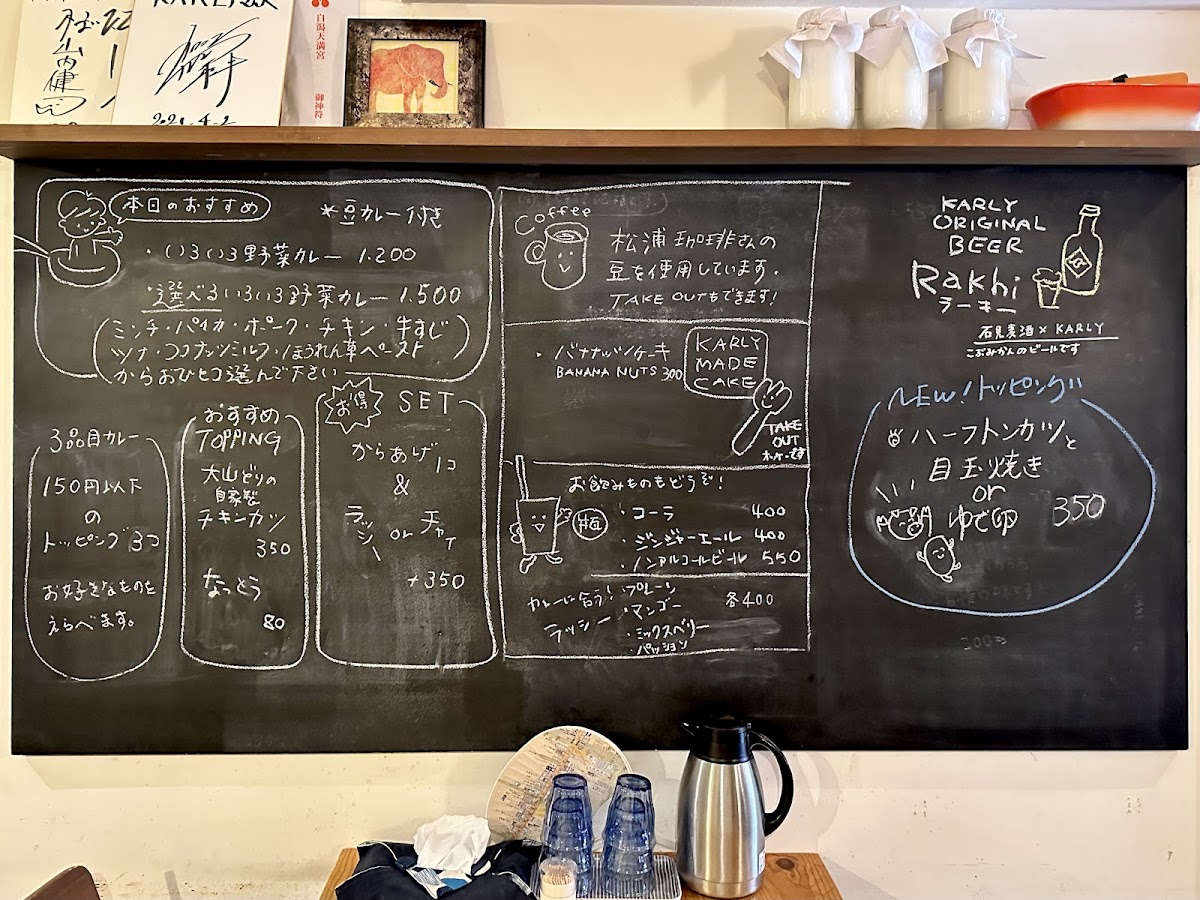 そば
山
内
健
2021.4.2
白潟天満宮 御神符
本日のおすすめ
*豆カレー付き
・いろいろ野菜カレー 1.200
・選べるいろいろ野菜カレー 1.500
(ミンチ・パイカ・ポーク・チキン・牛すじ
ツナ・ココナッツミルク・ほうれん草ペースト)
からおひとつ選んで下さい
3品目カレー
150円以下
の
トッピング3コ
お好きなものを
えらべます。
おすすめ
TOPPING
大山どりの
自家製
チキンカツ
350
なっとう
80
お得
SET
からあげ1コ
&
ラッシー or チャイ
+350
Coffee
松浦珈琲さんの
豆を使用しています。
TAKE OUTもできます!
・バナナナッツケーキ
BANANA NUTS 300
KARLY
MADE
CAKE
TAKE
OUT
お飲みものもどうぞ!
・コーラ 400
・ジンジャーエール 400
・ノンアルコールビール 550
カレーに合う!
ラッシー
・プレーン
・マンゴー
・ミックスベリー
・パッション
各400
KARLY
ORIGINAL
BEER
Rakhi
ラーキー
石見麦酒 × KARLY
こぶみかんのビールです
NEW!トッピング
ハーフトンカツと
目玉焼き
or
ゆで卵
350